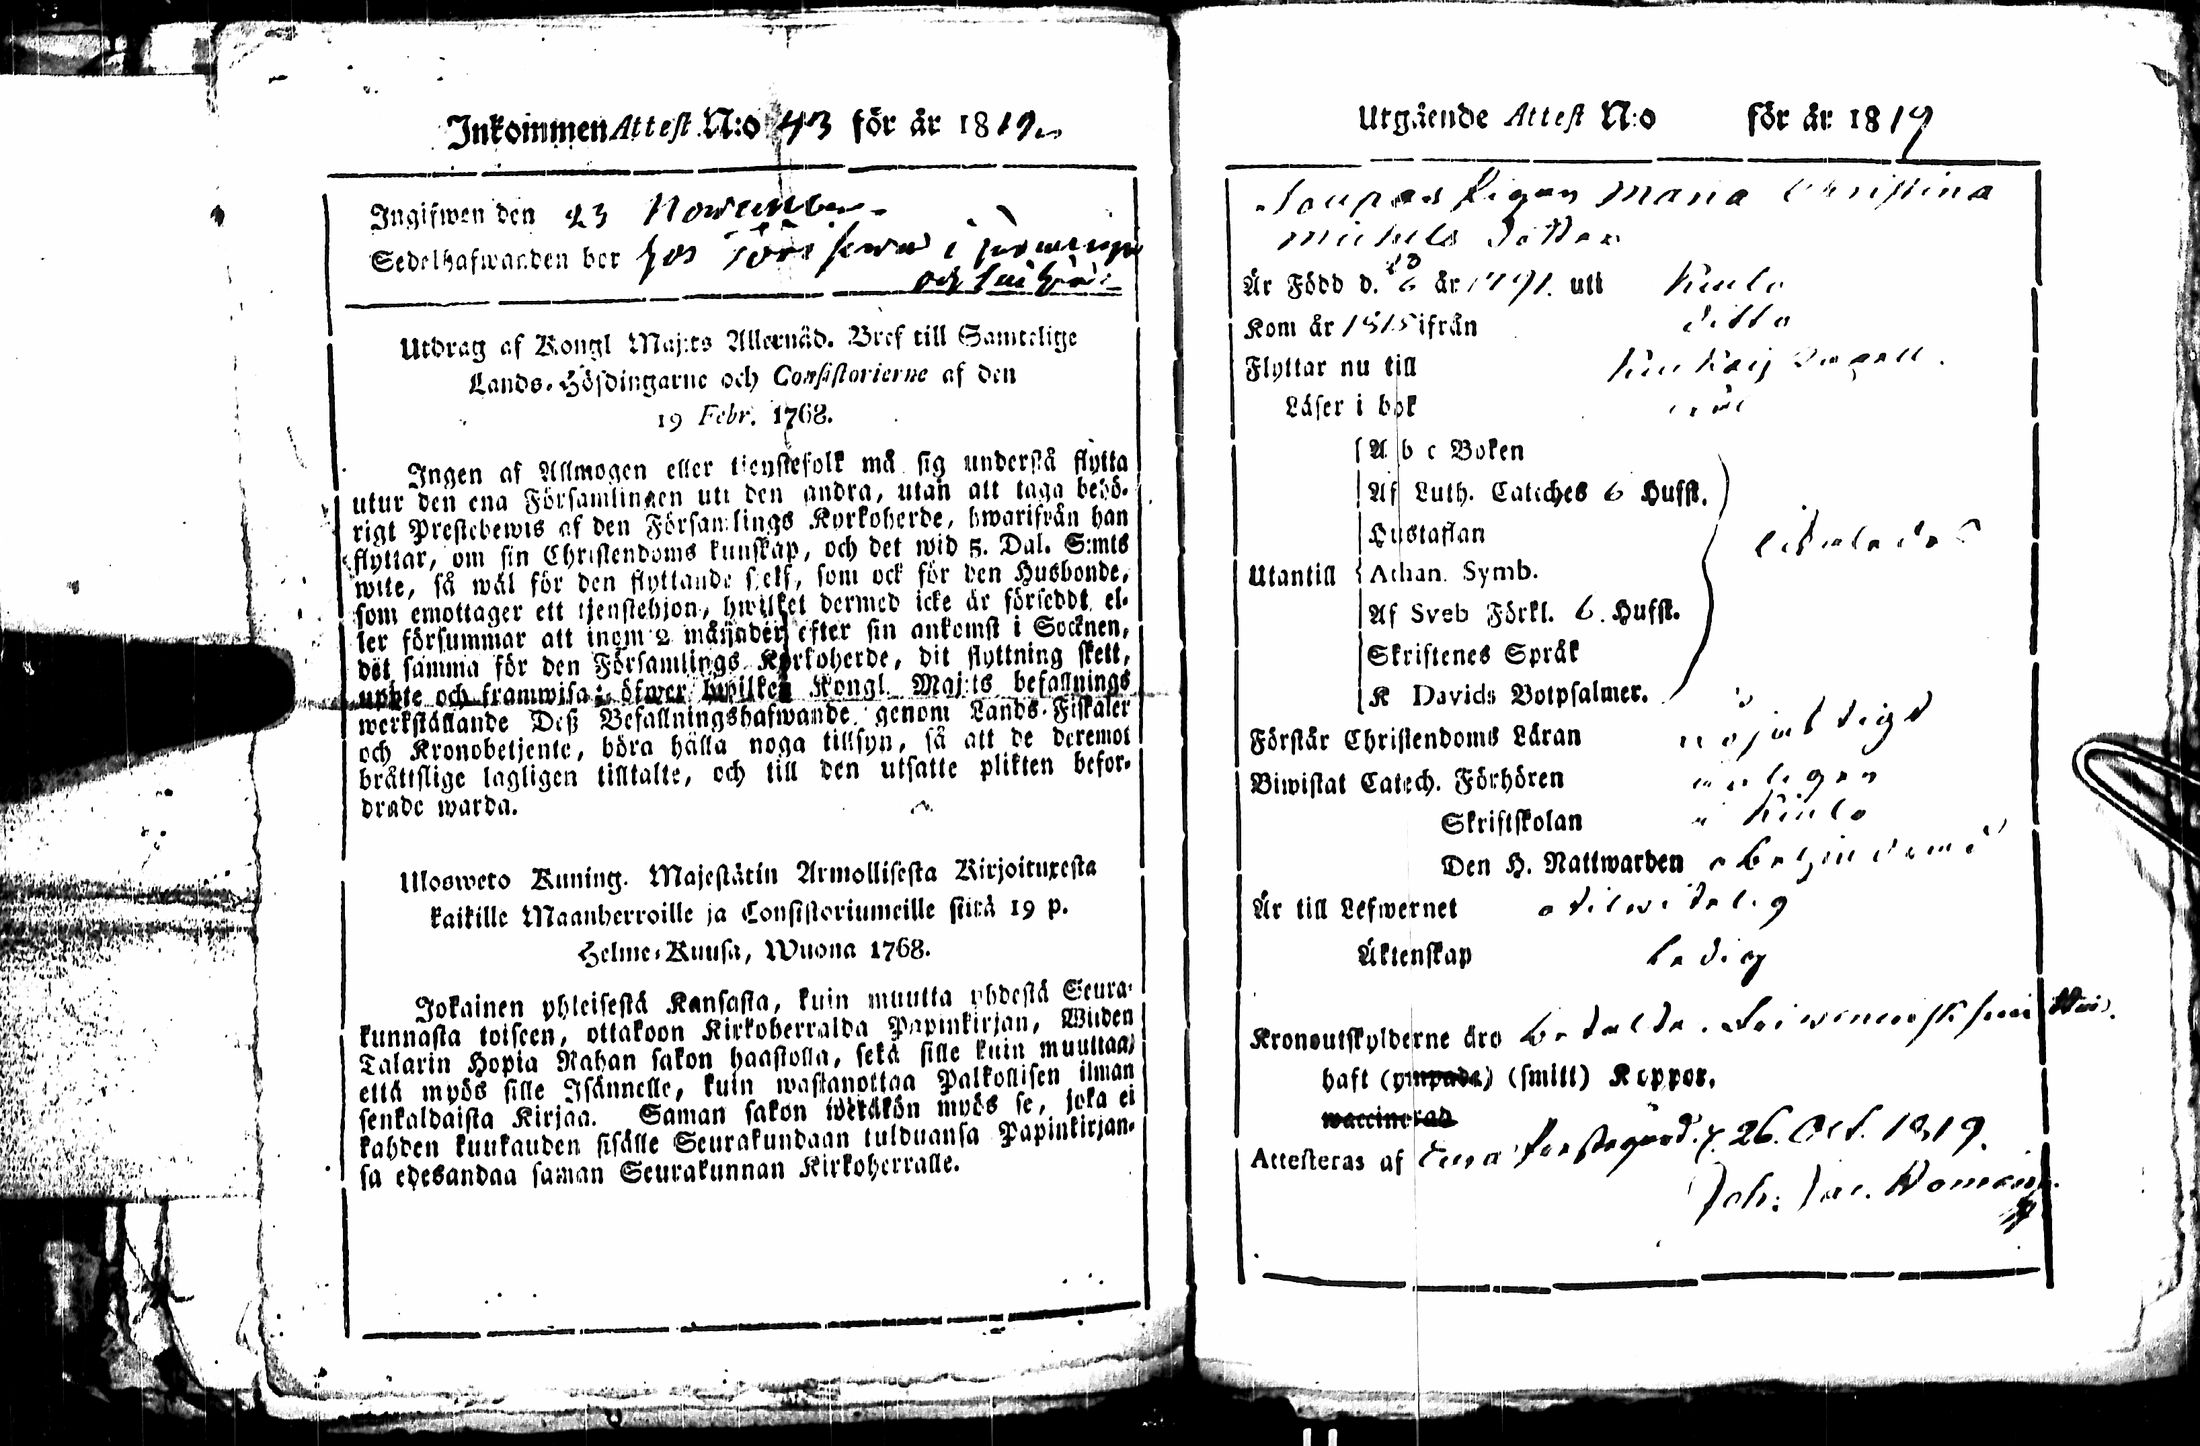 Inkommen Attest N:o 43 för år 1819
Ingifwen den 23 November
Sedelhafwanden bor hos i
och
Utdrag af Kongl Maj:ts Allernåd. Bref till Samtelige
Lands-Höfdingarne och Consistorierne af den
19 Febr. 1768.
Ingen af Allmogen eller tienstefolk må sig understå flytta
utur den ena Församlingen uti den andra, utan att taga behö-
rigt Prestebewis af den Församlings Kyrkoherde, hwarifrån han
flyttar, om sin Christendoms kunskap, och det wid 5. Dal. S:mts
wite, så wäl för den flyttande sjelf, som ock för den Husbonde,
som emottager ett tjenstehjon, hwilket dermed icke är förseddt el-
ler försummar att inom 2 månader efter sin ankomst i Socknen,
det samma för den Församlings Kyrkoherde, dit flyttning skett,
uppte och framwisa; öfwer hwilken Kongl Maj:ts befallnings
werkställande Deß Befallningshafwande genom Lands-Fiskaler
och Kronobetjente, böra hålla noga tillsyn, så att de deremot
bråttslige lagligen tilltalte, och till den utsatte plikten befor-
drade warda.
Ulosweto Kuning. Majestätin Armollisesta Kirjoituxesta
kaikille Maanherroille ja Consistoriumeille siitä 19 p.
Helme-Kuusa, Wuona 1768.
Jokainen yhteisestä Kansasta, kuin muutta yhdestä Seura-
kunnasta toiseen, ottakoon Kirkoherralda Papinkirjan, Wiiden
Talarin Hopia Rahan sakon haastolla, sekä sille kuin muuttaa,
että myös sille Isännelle, kuin wastanottaa Palkollisen ilman
senkaldaista Kirjaa. Saman sakon wetäkön myös se, joka ei
kahden kuukauden sisälle Seurakundaan tulduansa Papinkirjan-
sa edesandaa saman Seurakunnan Kirkoherralle.
Utgående Attest N:o för år 1819
Pigan Maria Christina
Michels Dotter
Är Född d. 6 år 1791. uti Kiulo
Kom år 1815 ifrån ditto
Flyttar nu till
Läser i bok
A b c Boken
Af Luth. Cateches 6 Hufst.
Hustaflan
Utantill Athan. Symb.
Af Sveb Förkl. 6. Hufst.
Skriftenes Språk
K Davids Botpsalmer.
Förstår Christendoms Läran nöjaktigt
Biwistat Catech. Förhören årligen
Skriftskolan i Kiulo
Den H. Nattwarden obehindrad
Är till Lefwernet otilwitelig
Äktenskap ledig
Kronoutskylderne äro betalte.
haft (ympade) (smitt) Koppor.
waccinerad
Attesteras af Eura Prestegård d. 26. Oct. 1819.
Joh: Jac.